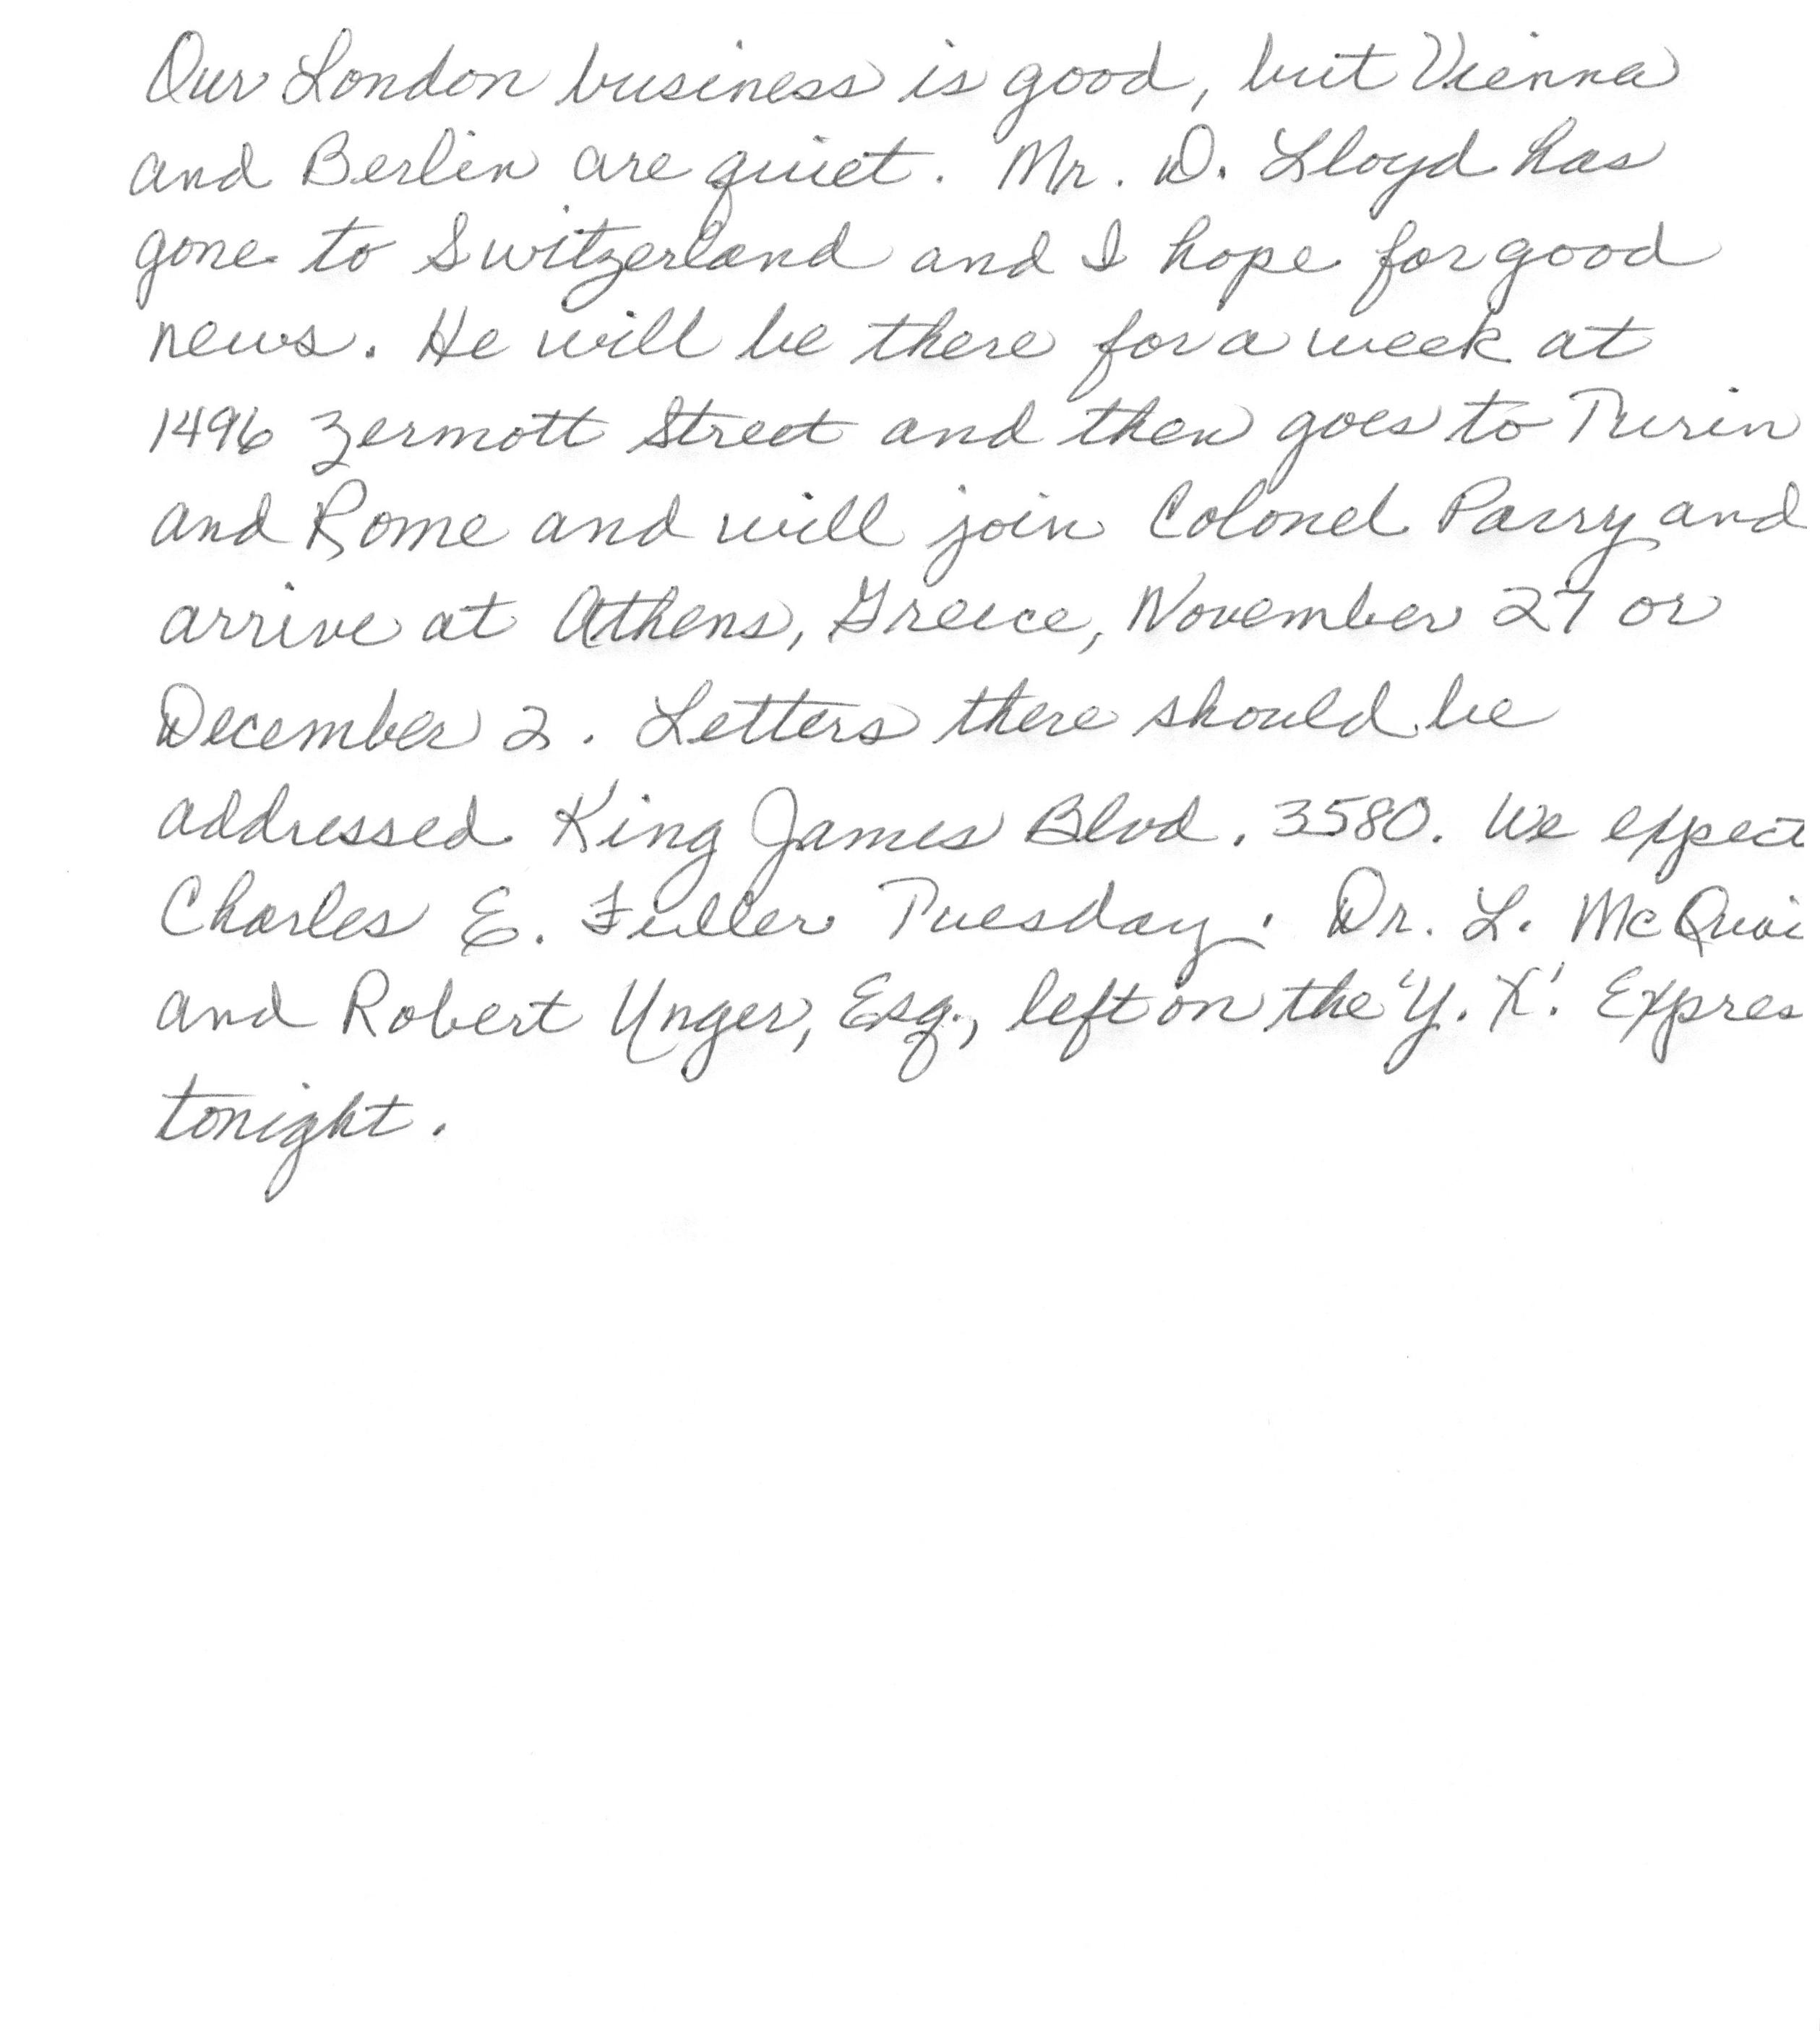 Our London business is good, but Vienna
and Berlin are quiet. Mr. D. Lloyd has
gone to Switzerland and I hope for good
news. He will be there for a week at
1496 Zermott Street and then goes to Turin
and Rome and will join Colonel Parry and
arrive at Athens, Greece, November 27 or
December 2. Letters there should be
addressed King James Blvd. 3580. We expect
Charles E. Fuller Tuesday. Dr. L. McQuai
and Robert Unger, Esq., left on the 'Y. X.' Expres
tonight.